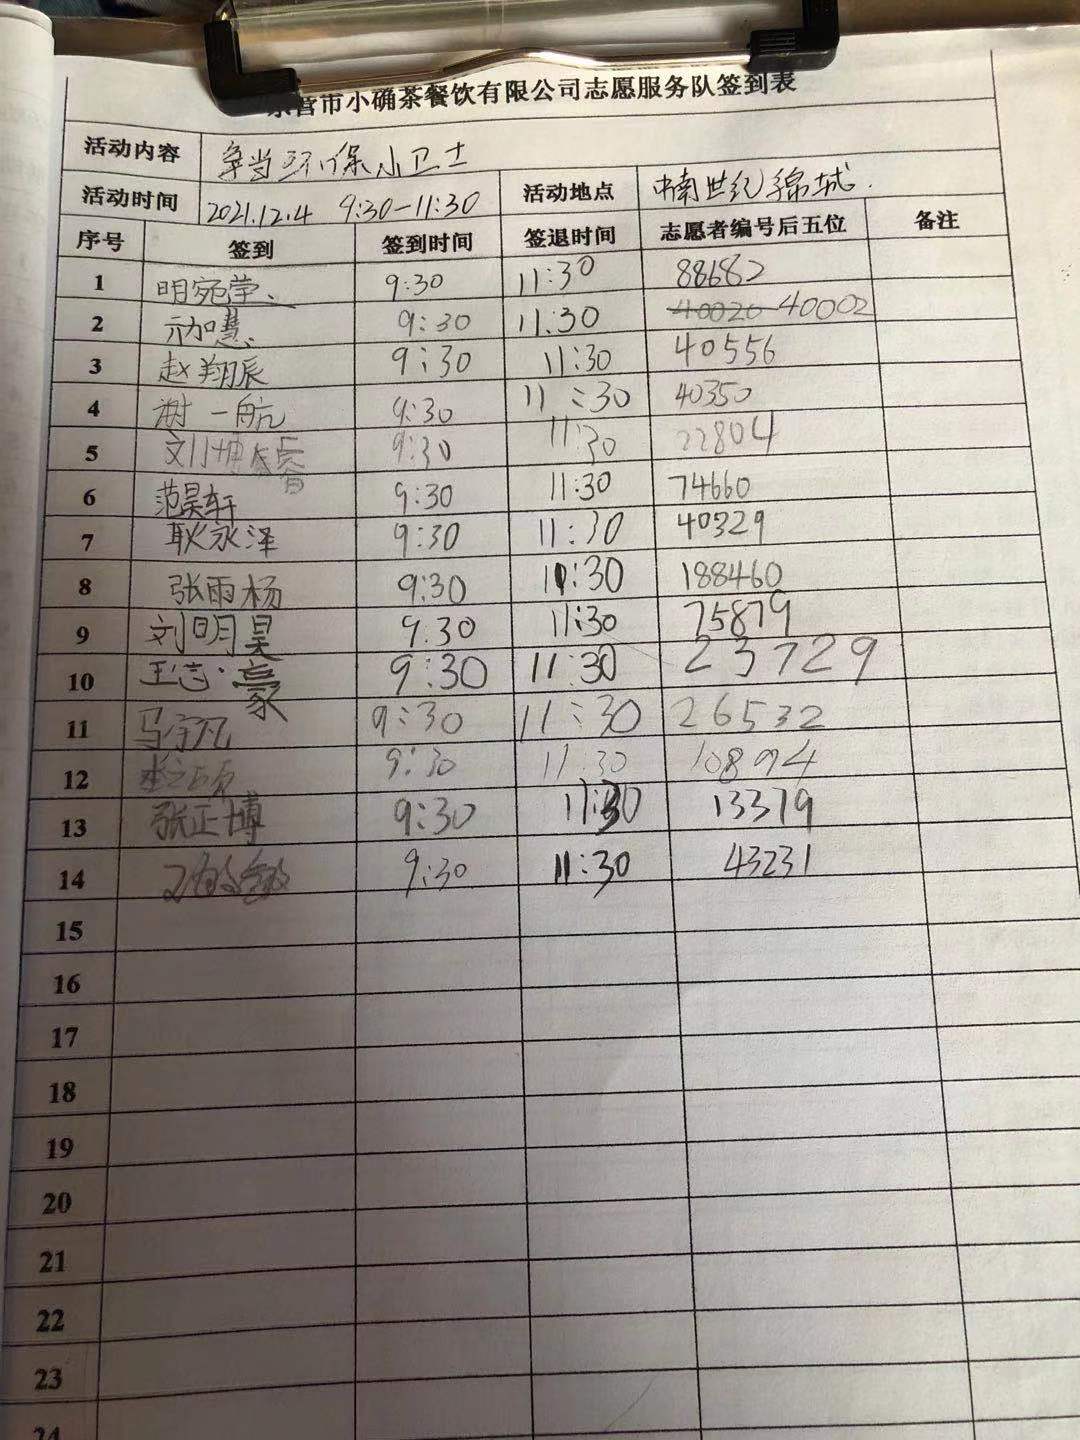 营市小确茶餐饮有限公司志愿服务队签到表
活动内容 争当环保小卫士
活动时间 2021.12.4 9:30-11:30 活动地点 中南世纪锦城.
序号 签到 签到时间 签退时间 志愿者编号后五位 备注
1 明宛莹、 9:30 11:30 88682
2 9:30 11:30 40020 40002
3 赵翔辰 9:30 11:30 40556
4 一航 9:30 11:30 40350
5 刘博睿 9:30 11:30 22804
6 范昊轩 9:30 11:30 74660
7 耿永泽 9:30 11:30 40329
8 张雨杨 9:30 11:30 188460
9 刘明昊 9.30 11:30 75879
10 王志豪 9:30 11:30 23729
11 马宇凡 9:30 11:30 26532
12 9:30 11:30 108994
13 张正博 9:30 11:30 13379
14 9:30 11:30 43231
15
16
17
18
19
20
21
22
23
24